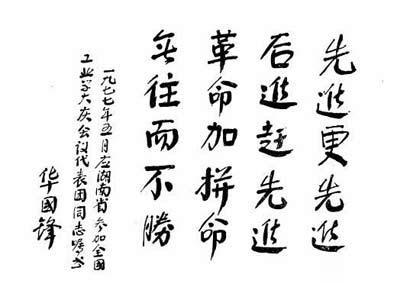 先進更先進
后進赶先進
革命加拼命
无往而不勝
一九七七年五月应湖南省参加全国
工业学大庆会议代表团同志嘱书
华國锋